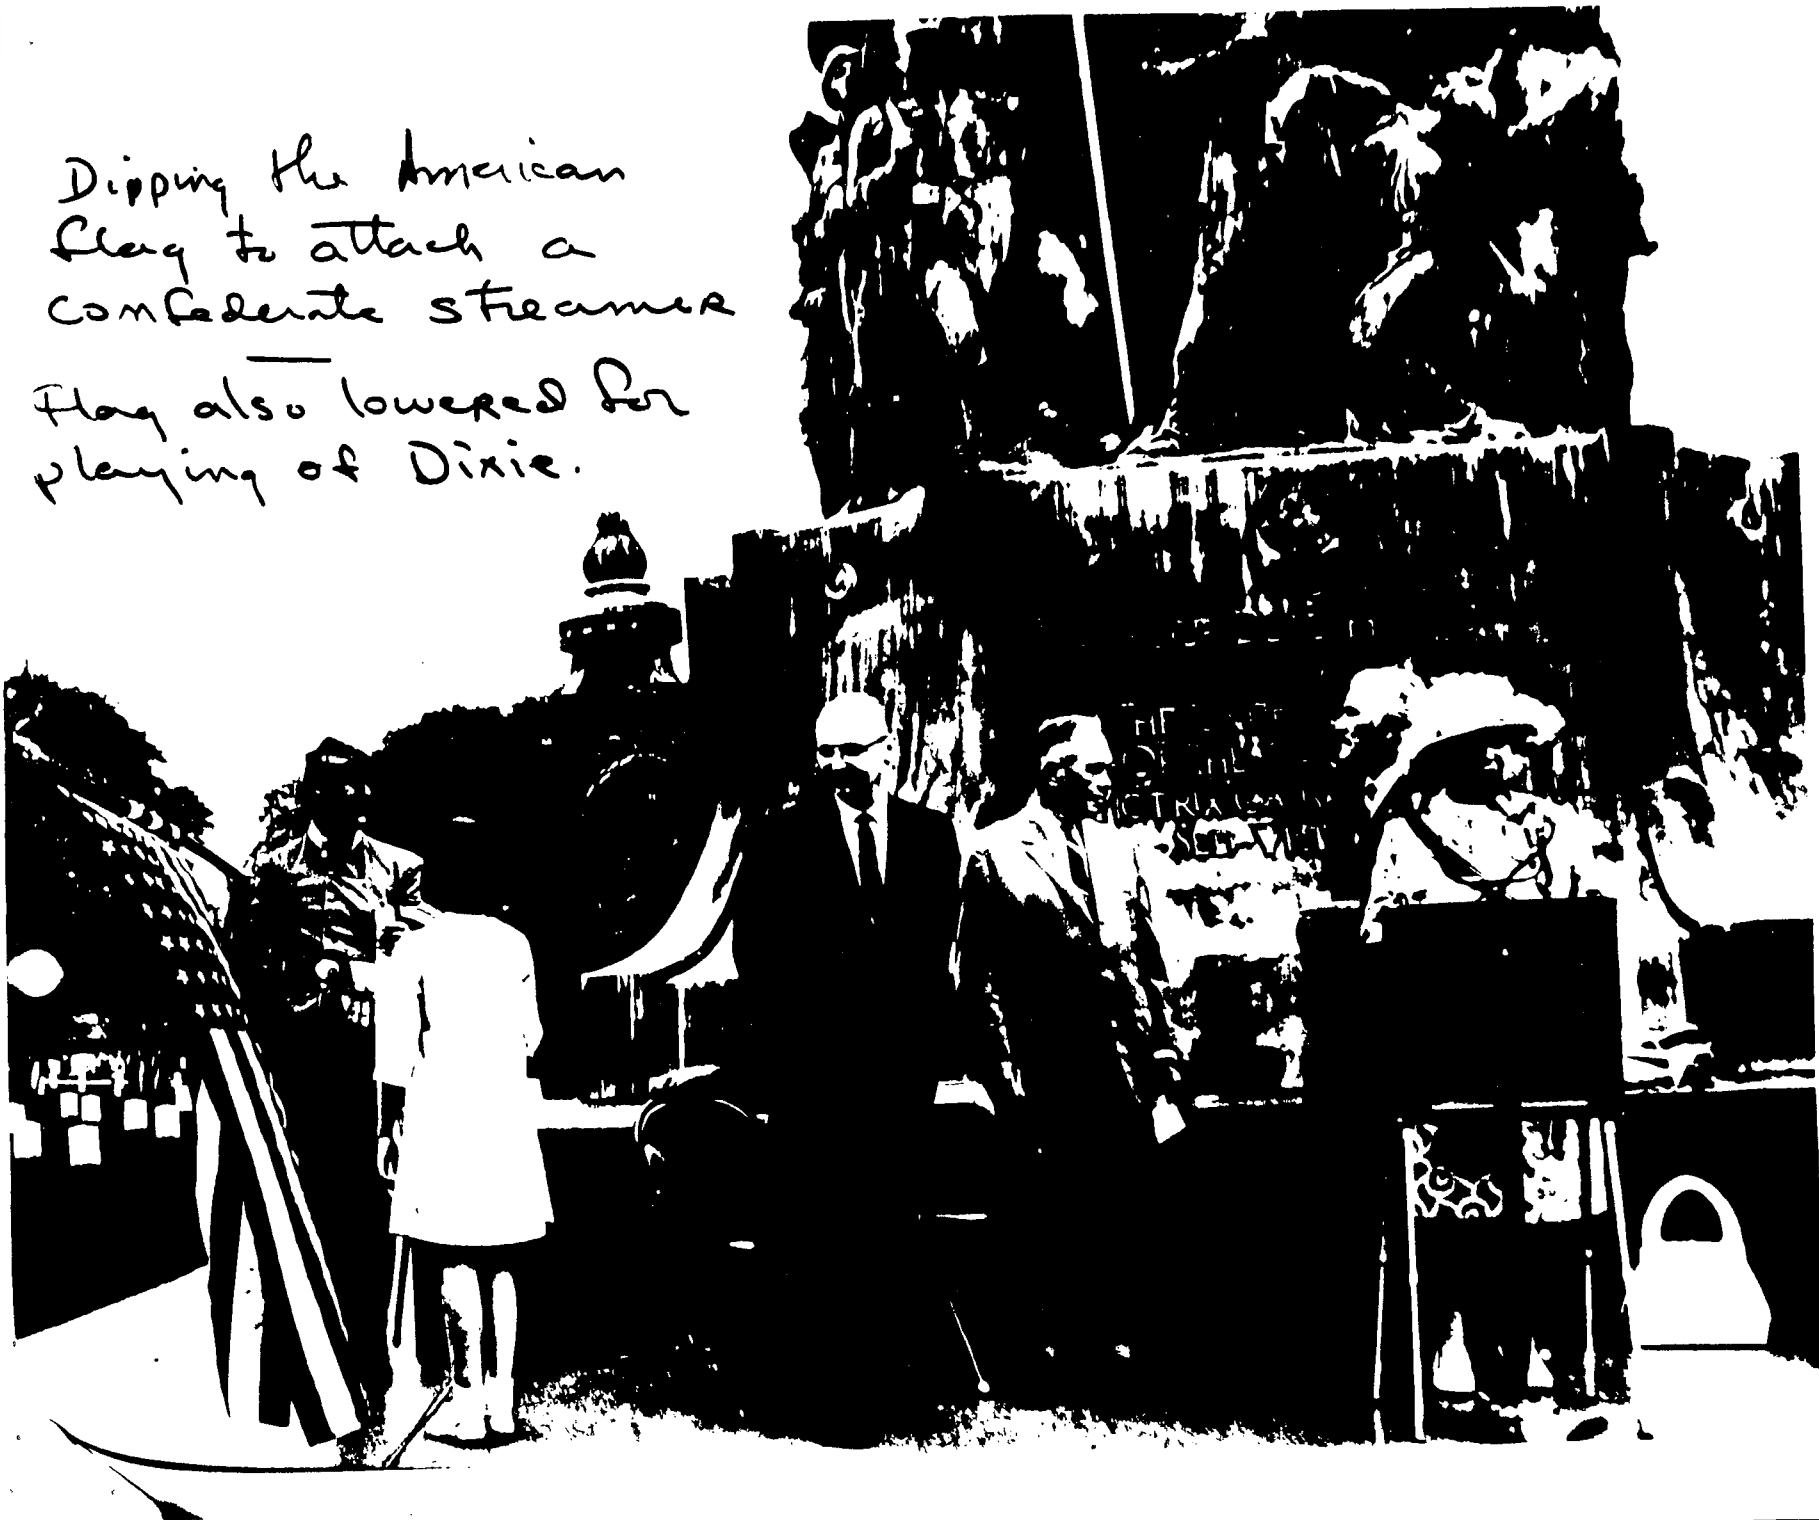 Dipping the American
flag to attach a
confederate streamer
Flag also lowered for
playing of Dixie.
VICTRIX CAUSA